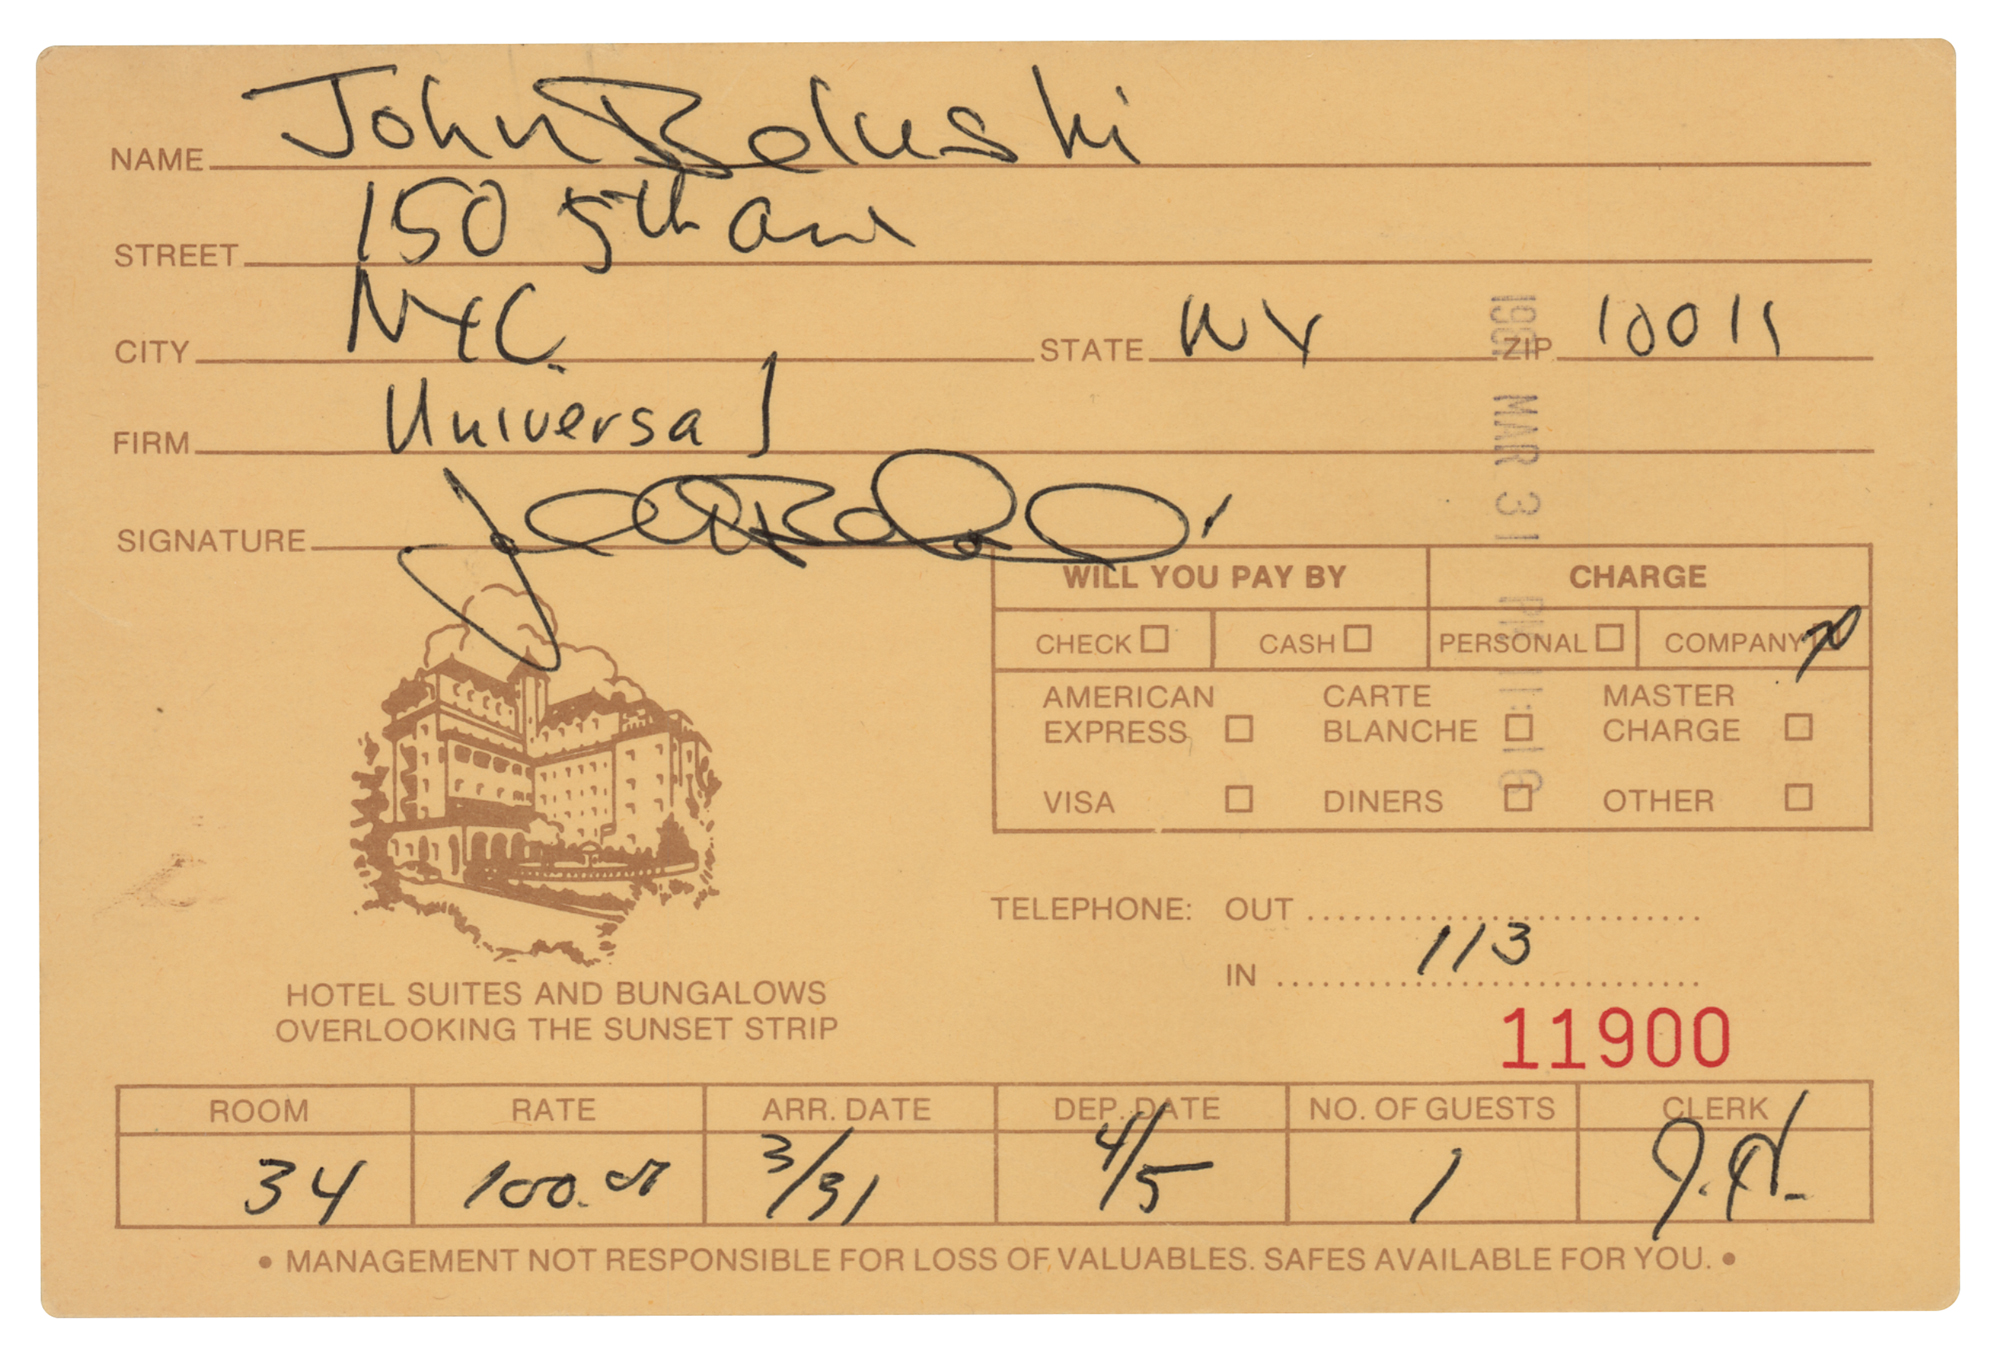 NAME John Belushi
STREET 150 5th Ave
CITY NYC. STATE NY ZIP 10011
FIRM Universal
SIGNATURE
MAR 31 PM
WILL YOU PAY BY CHARGE
CHECK CASH PERSONAL COMPANY
AMERICAN EXPRESS CARTE BLANCHE MASTER CHARGE
VISA DINERS OTHER
TELEPHONE: OUT
IN 113
11900
HOTEL SUITES AND BUNGALOWS
OVERLOOKING THE SUNSET STRIP
ROOM RATE ARR. DATE DEP. DATE NO. OF GUESTS CLERK
34 100.00 3/31 4/5 1 J.H.
• MANAGEMENT NOT RESPONSIBLE FOR LOSS OF VALUABLES. SAFES AVAILABLE FOR YOU. •